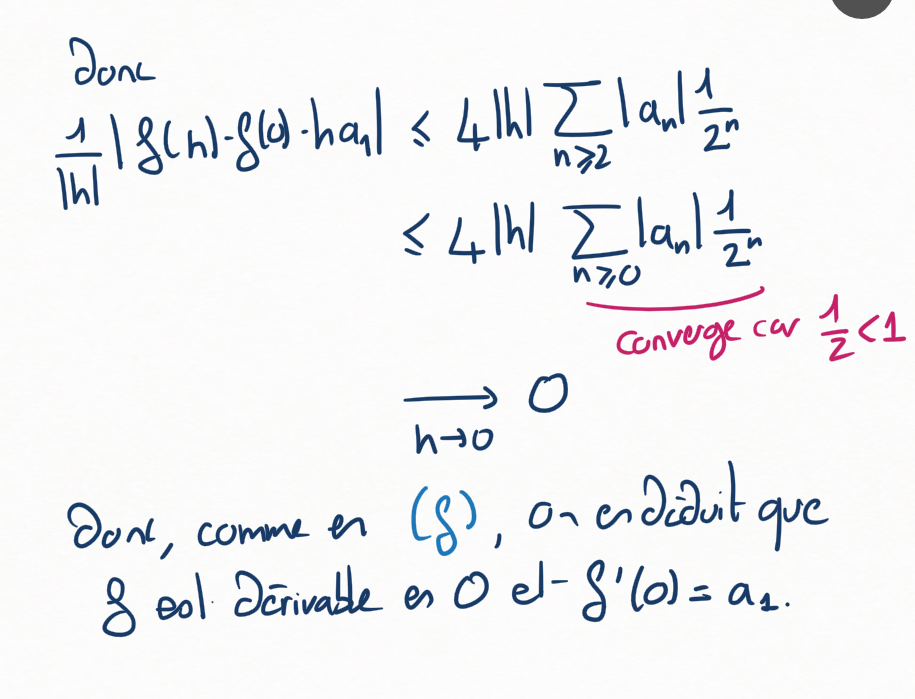 Donc
1/|h| |f(h)-f(0)-ha₁| ≤ 4|h| ∑_{n≥2} |aₙ| 1/2ⁿ
≤ 4|h| ∑_{n≥0} |aₙ| 1/2ⁿ
converge car 1/2 < 1
⟶_{h→0} 0
Donc, comme en (f), on en déduit que
f est dérivable en 0 et f'(0) = a₁.